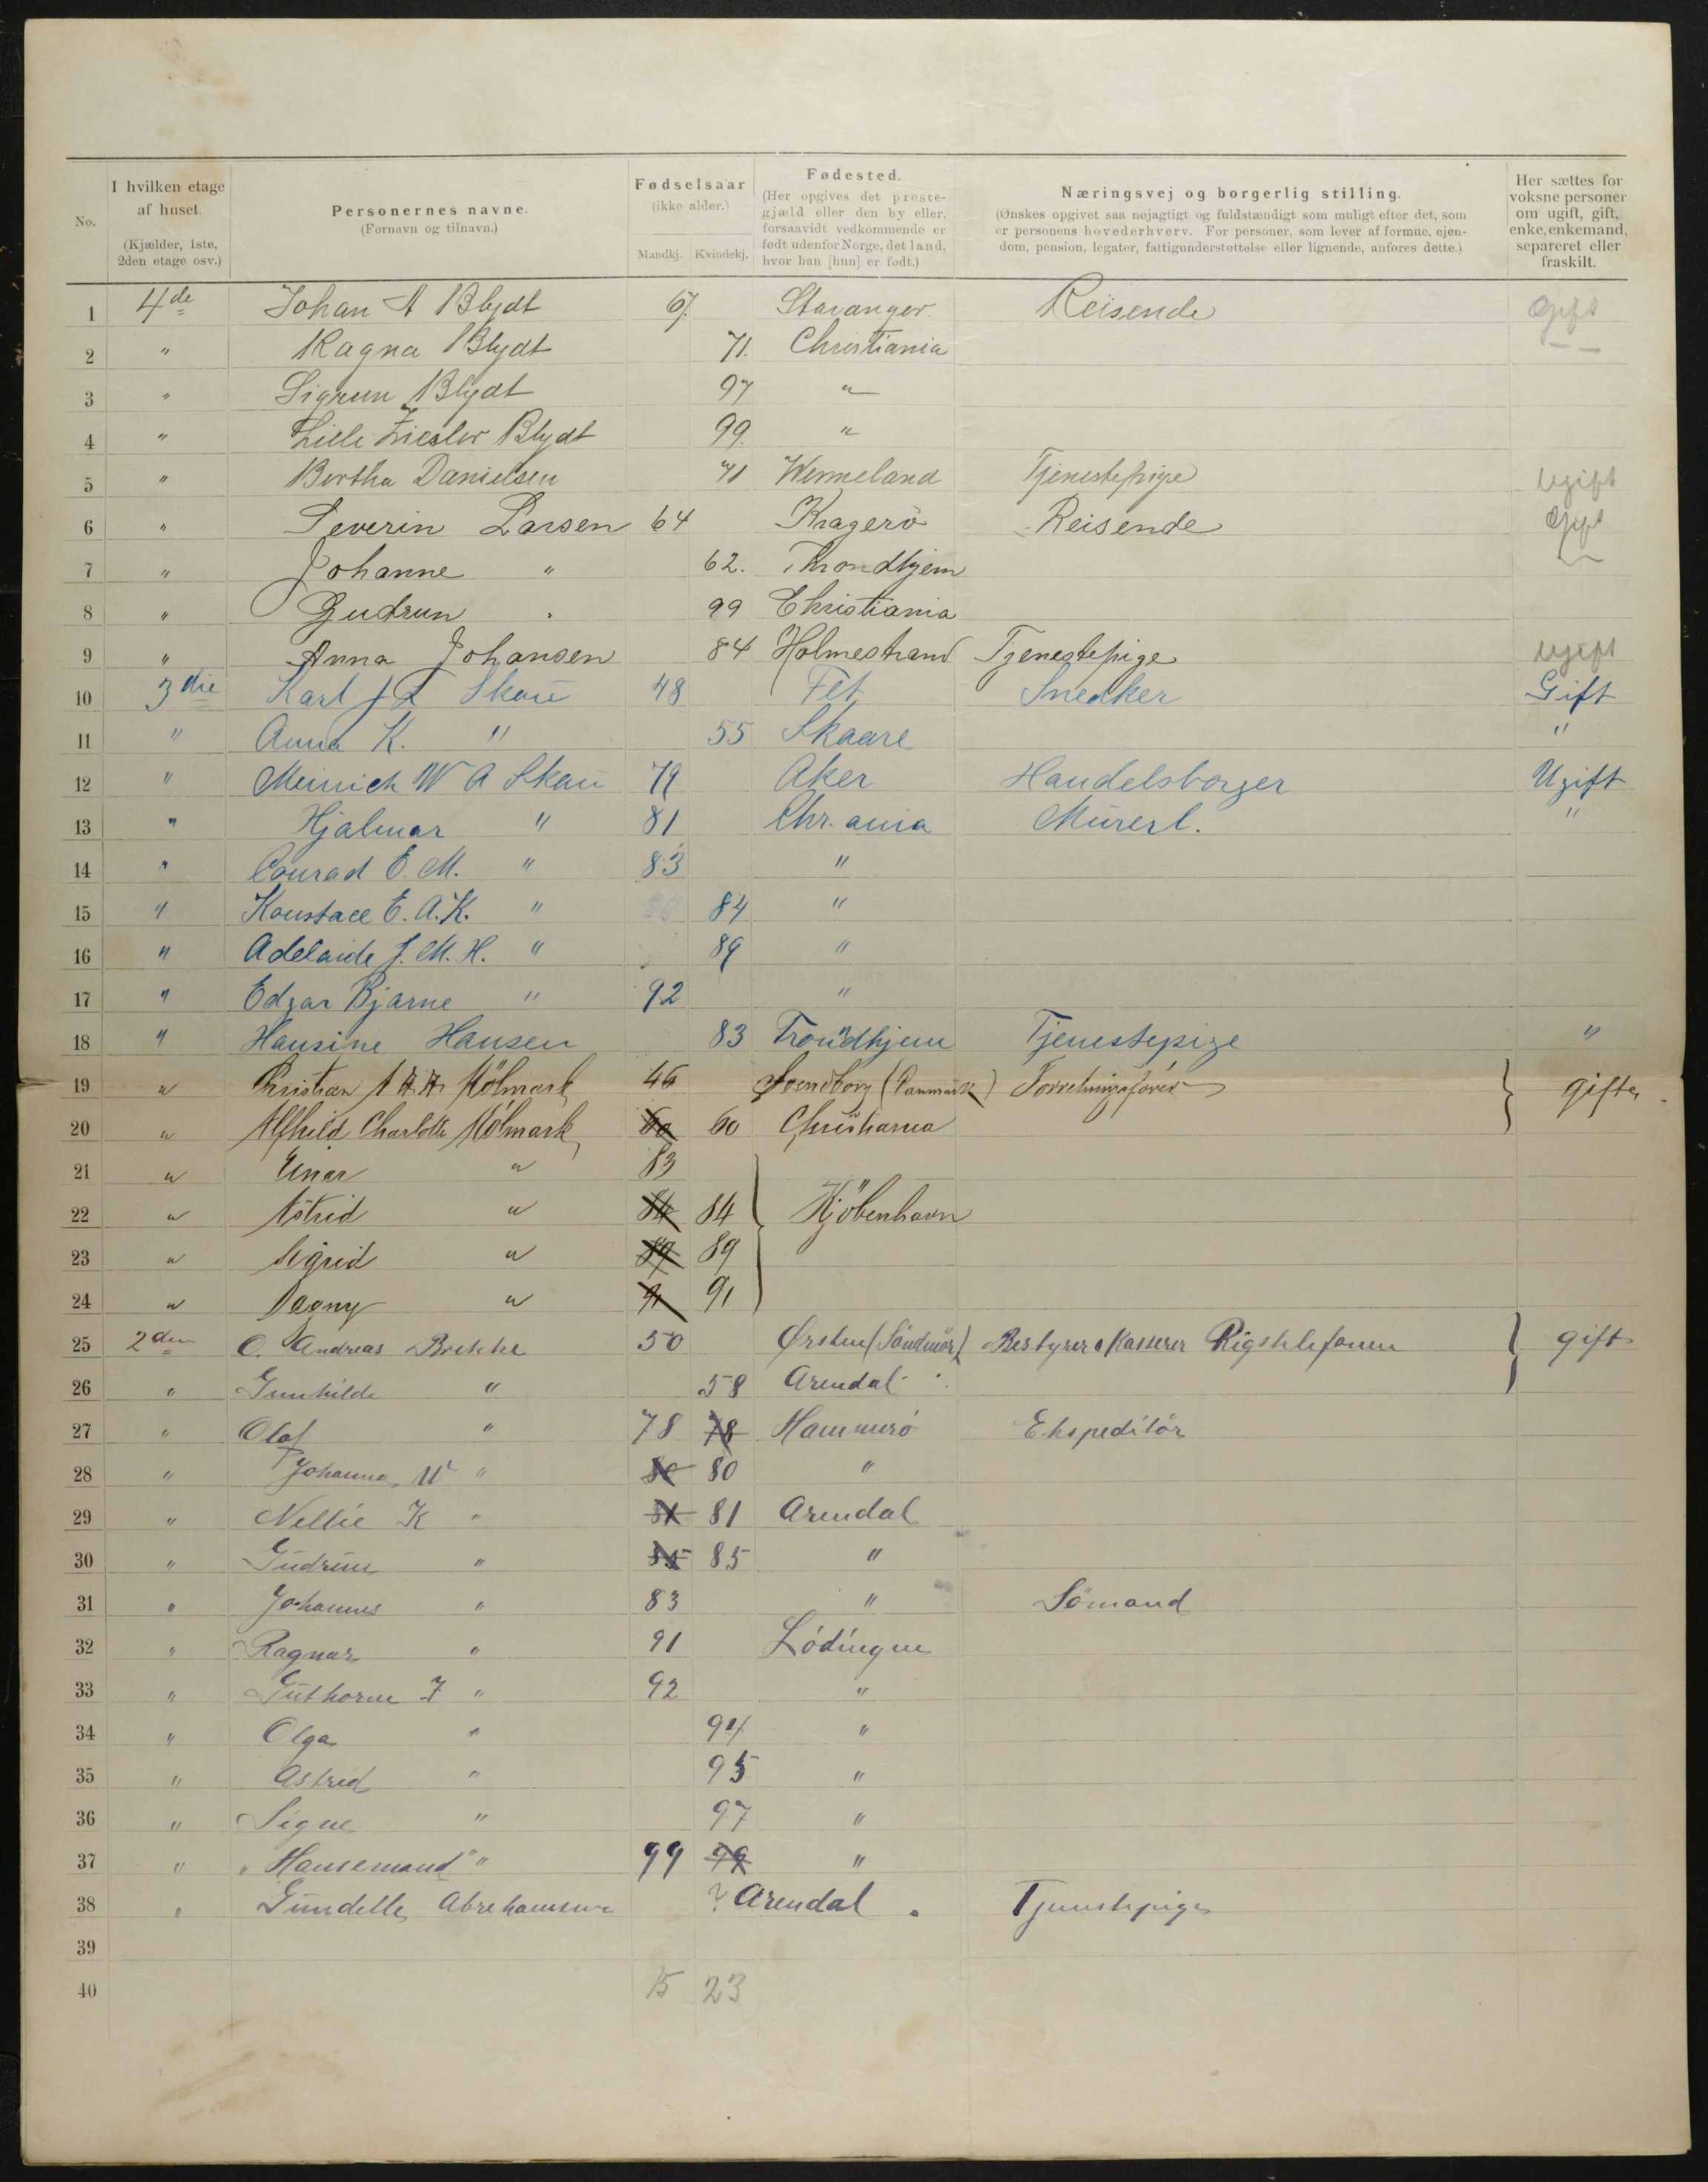 No. I hvilken etage af huset. (Kjælder, 1ste, 2den etage osv.) Personernes navne. (Fornavn og tilnavn.) Fødselsaar (ikke alder.) Mandkj. Kvindekj. Fødested. (Her opgives det prestegjæld eller den by eller, forsaavidt vedkommende er født udenfor Norge, det land, hvor han [hun] er født.) Næringsvej og borgerlig stilling. (Ønskes opgivet saa nøjagtigt og fuldstændigt som muligt efter det, som er personens hovederhverv. For personer, som lever af formue, ejendom, pension, legater, fattigunderstøttelse eller lignende, anføres dette.) Her sættes for voksne personer om ugift, gift, enke, enkemand, separeret eller fraskilt.
1 4de Johan A Blydt 67. Stavanger. Reisende Gift
2 " Ragna Blydt 71. Christiania
3 " Sigrun Blydt 97 "
4 " Lilli Ziesler Blydt 99. "
5 " Bertha Danielsen 71 Wermeland Tjenestepige ugift
6 " Severin Larsen 64 Kragerö Reisende Gift
7 " Johanne " 62. Throndhjem
8 " Gudrun " 99 Christiania
9 " Anna Johansen 84 Holmestrand Tjenestepige ugift
10 3die Karl J L Skau 48 Fet Snedker Gift
11 " Anna K. " 55 Skaare "
12 " Meinich W A Skau 79 Aker Handelsborger Ugift
13 " Hjalmar " 81 Chr.ania Murerl. "
14 " Conrad E. M. " 83 "
15 " Konstace E. A. K. " 84 "
16 " Adelaide J. M. H. " 89 "
17 " Edgar Bjarne " 92 "
18 " Hansine Hansen 83 Trondhjem Tjenestepige "
19 " Christian A Hölmark 46 Svendborg (Danmark) Forretningsförer gifte
20 " Alfhild Charlotte Hölmark 60 60 Christiania
21 " Einar " 83
22 " Astrid " 84 84 Kjöbenhavn
23 " Sigrid " 89 89
24 " Dagny " 91 91
25 2den O. Andreas Brekke 50 Ørsten (Söndmör) Bestyrer & Kasserer Rigstelefonen gift
26 " Gunhilde " 58 Arendal
27 " Olaf " 78 78 Hammerö Ekspeditör
28 " Johanna W " 80 80 "
29 " Nellie K " 81 81 Arendal
30 " Gudrun " 85 85 "
31 " Johannes " 83 " Sömand
32 " Ragnar " 91 Lödingen
33 " Guthorm F " 92 "
34 " Olga " 94 "
35 " Astrid " 95 "
36 " Signe " 97 "
37 " "Hansemand" " 99 99 "
38 " Gundelle Abrehamsen ? Arendal Tjenstepige
39
40 15 23